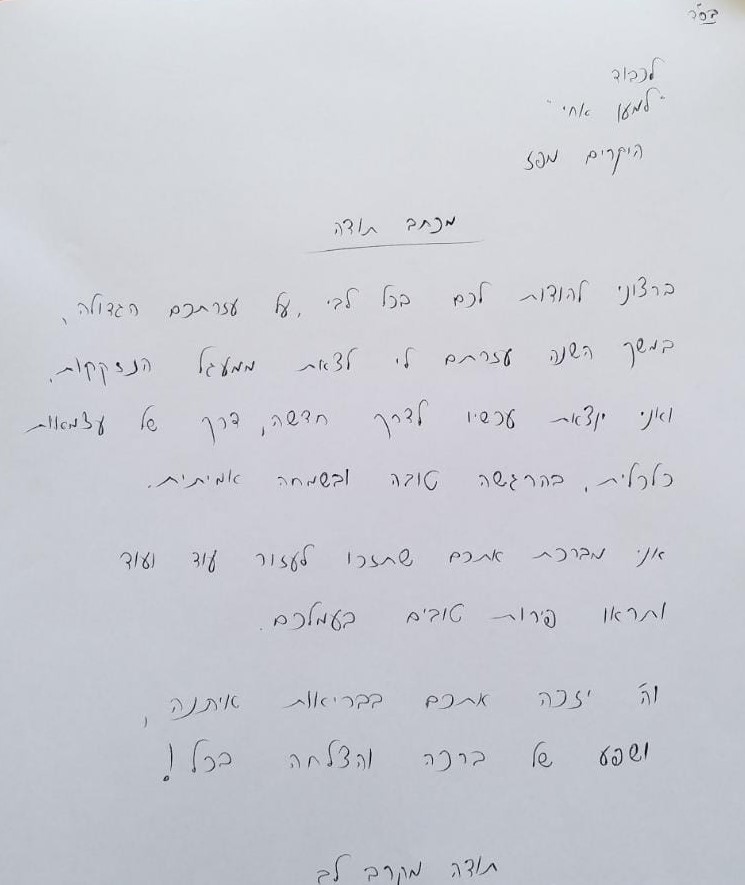 בס"ד
לכבוד
"למען אחי"
היקרים מפז
מכתב תודה
ברצוני להודות לכם בכל לבי, על עזרתכם הגדולה,
במשך השנה עזרתם לי לצאת ממעגל הנזקקות,
ואני יוצאת עכשיו לדרך חדשה, דרך של עצמאות
כלכלית, בהרגשה טובה ובשמחה אמיתית.
אני מברכת אתכם שתזכו לעזור עוד ועוד
ותראו פירות טובים בעמלכם.
וה' יזכה אתכם בבריאות איתנה,
ושפע של ברכה והצלחה בכל!
תודה מקרב לב